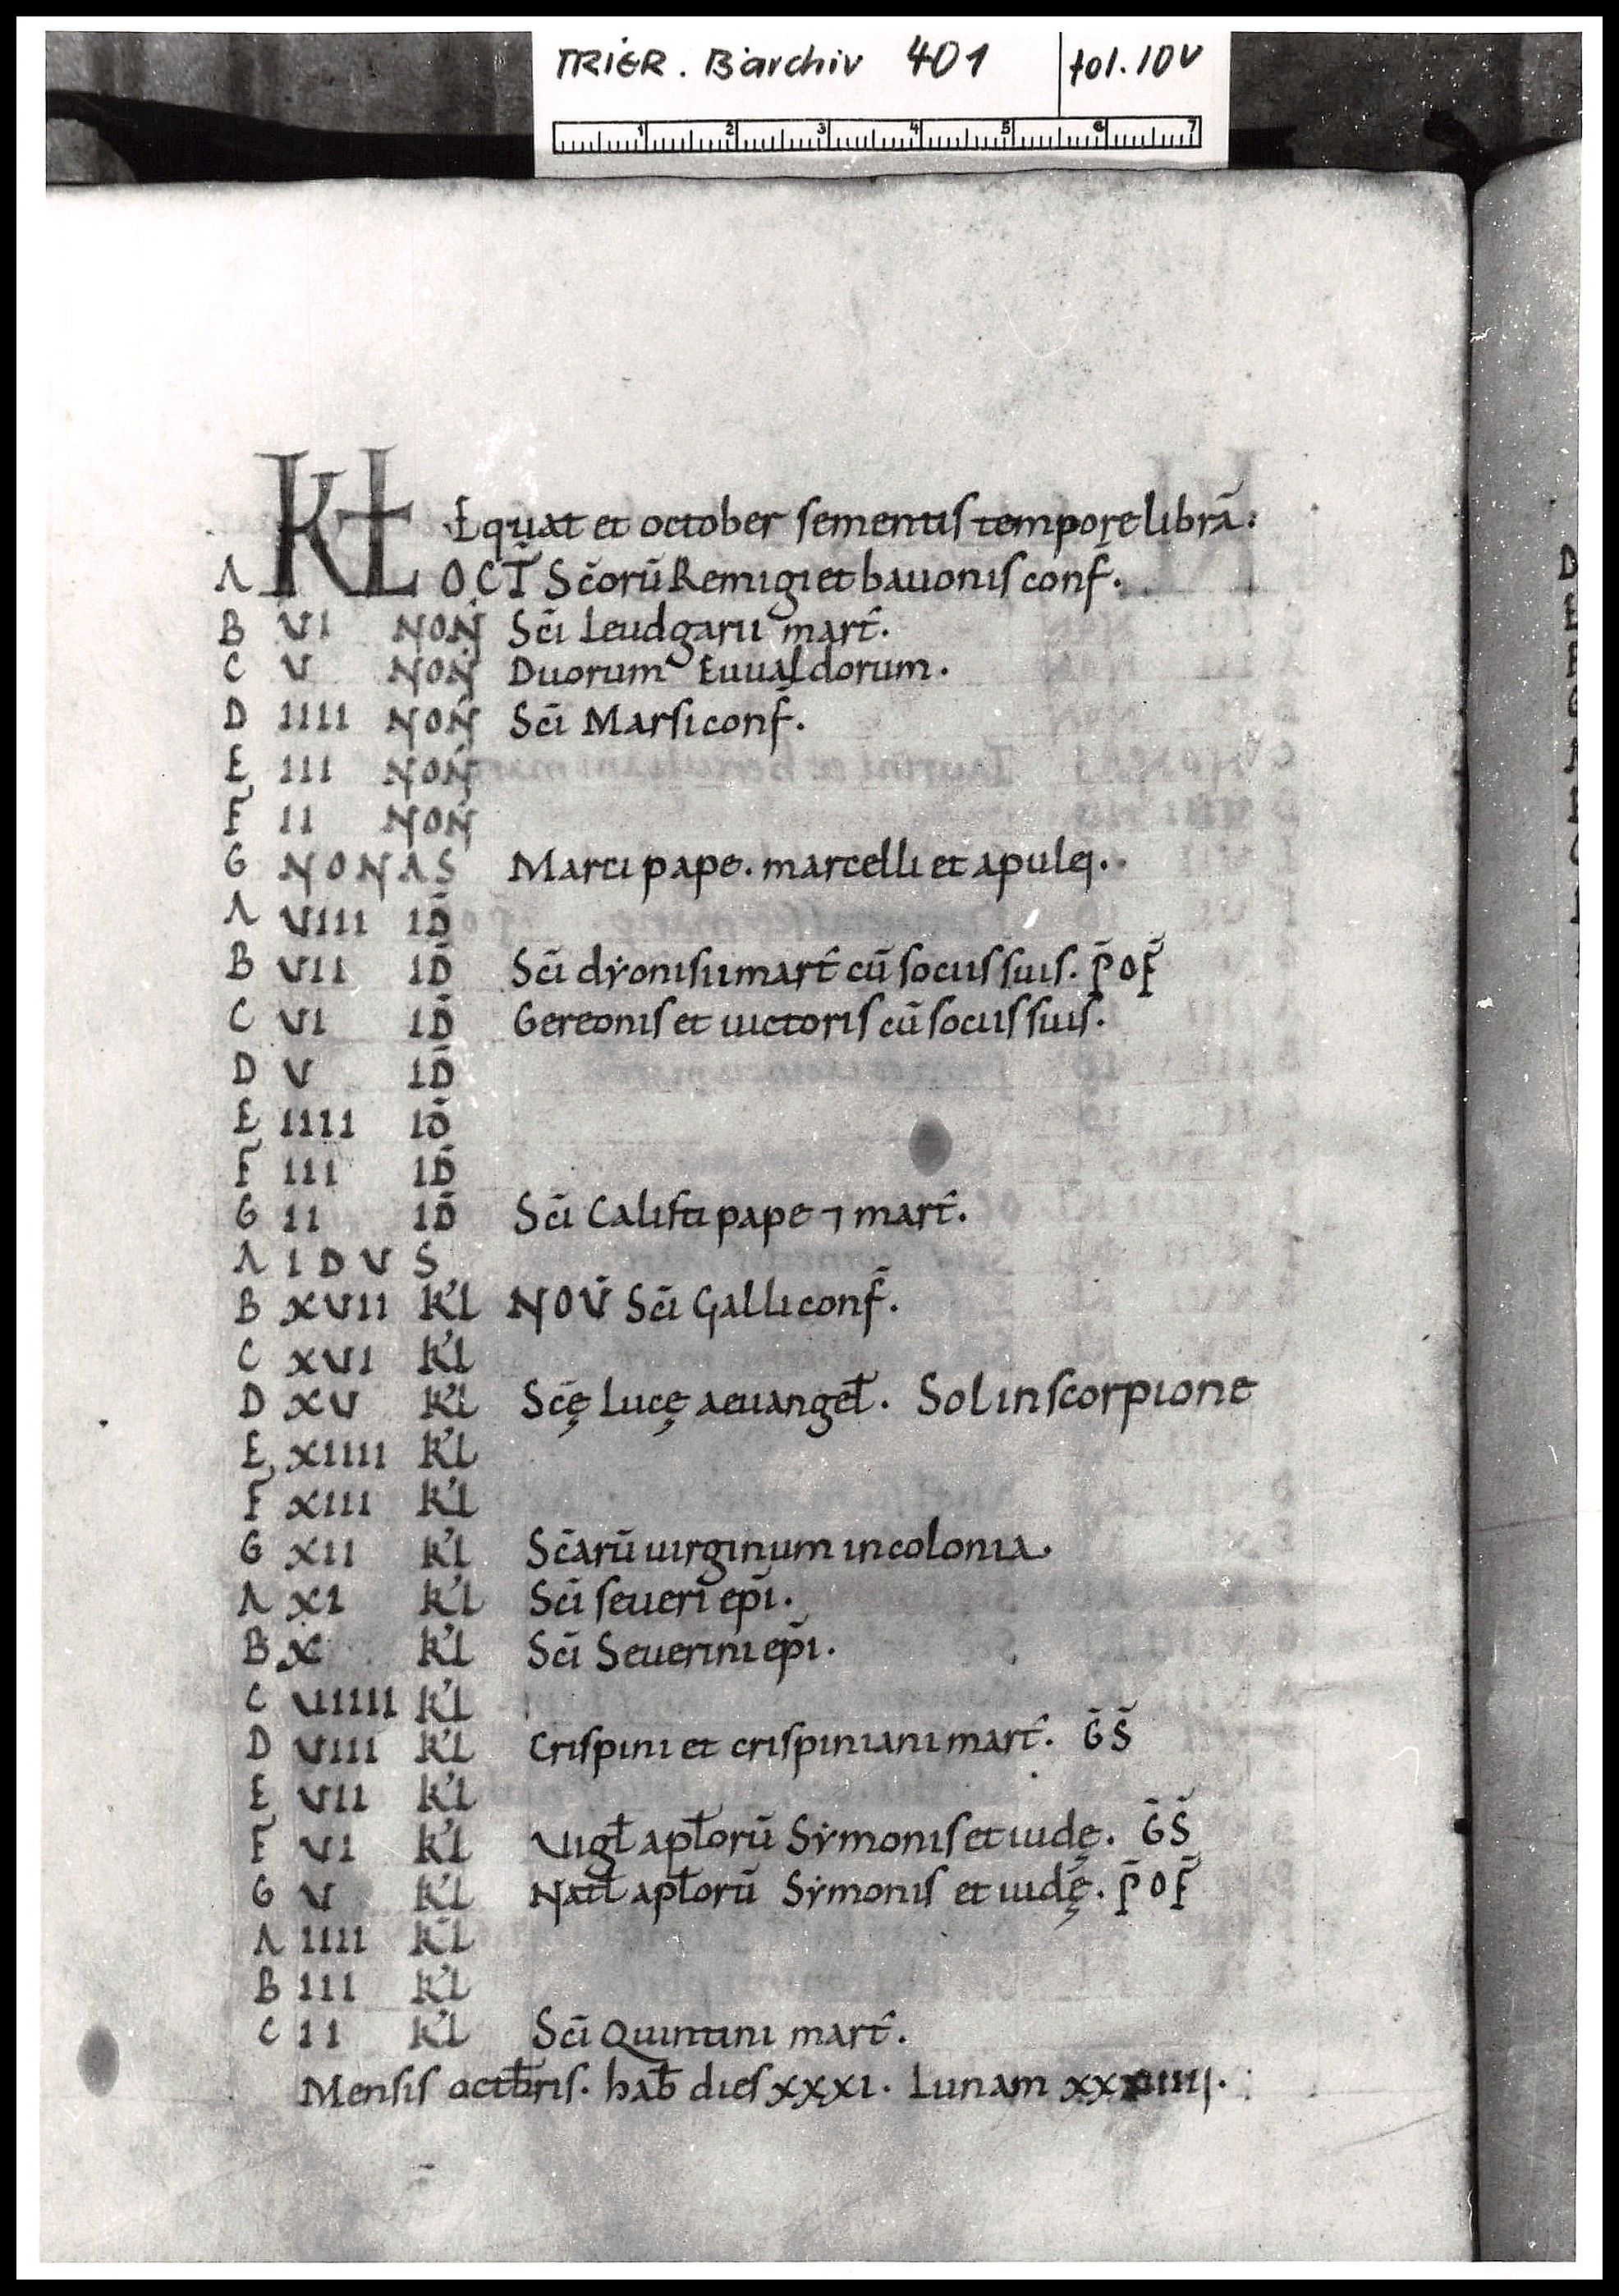 TRIER. Barchiv 401 fol. 10v
1 2 3 4 5 6 7
KL Equat et october sementis tempore librā:
A OCT̄ Sc̄orū Remigi et bauonis conf̄.
B VI NON̄ Sc̄i Leudgarii mart̄.
C V NON̄ Duorum Euualdorum.
D IIII NON̄ Sc̄i Marsi conf̄.
E III NON̄
F II NON̄
G NONAS Marci pape. marcelli et apulei.
A VIII ID̄
B VII ID̄ Sc̄i dẏonisii mart̄ cū sociis suis. P̄OF̄
C VI ID̄ Gereonis et uictoris cū sociis suis.
D V ID̄
E IIII ID̄
F III ID̄
G II ID̄ Sc̄i Calisti pape ⁊ mart̄.
A IDVS
B XVII KL NOV̄ Sc̄i Galli conf̄.
C XVI KL
D XV KL Sc̄ę Lucę aeuangel̄. Sol in scorpione
E XIIII KL
F XIII KL
G XII KL Sc̄arū uirginum in colonia.
A XI KL Sc̄i seueri ep̄i.
B X KL Sc̄i Seuerini ep̄i.
C VIIII KL
D VIII KL Crispini et crispiniani mart̄. ḠS̄
E VII KL
F VI KL Uigl̄ apl̄orū Sẏmonis et iudę. ḠS̄
G V KL Natl̄ apl̄orū Sẏmonis et iudę. P̄OF̄
A IIII KL
B III KL
C II KL Sc̄i Quintini mart̄.
Mensis octb̄ris. hab̄ dies xxxi. Lunam